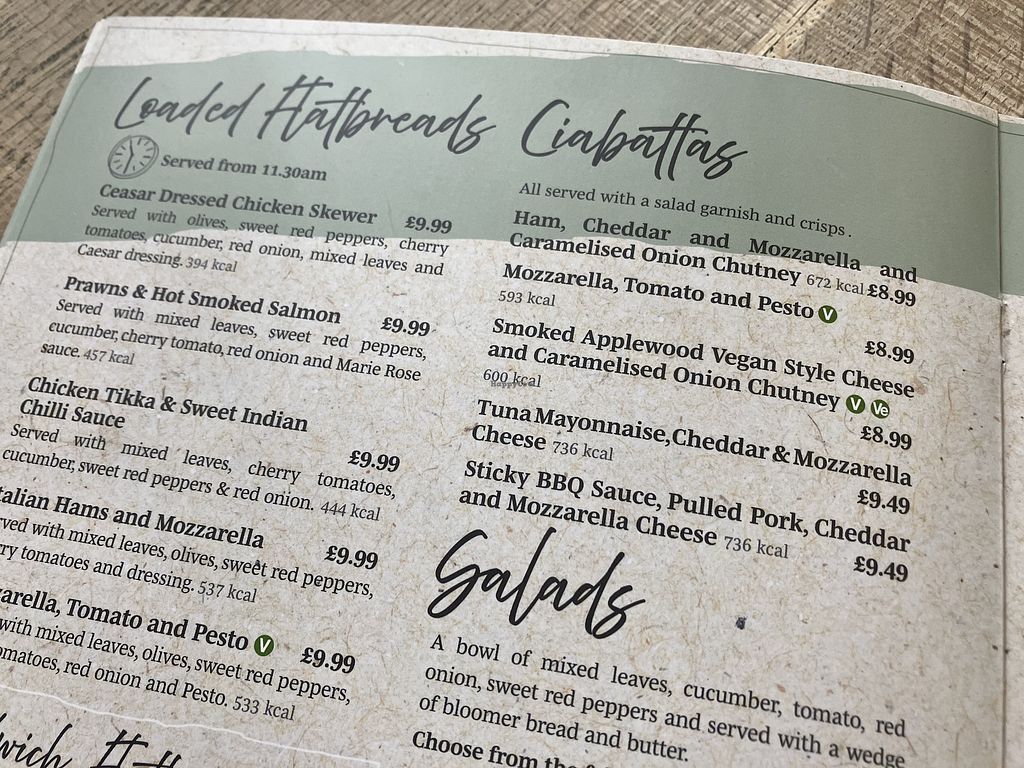 Loaded Flatbreads
Served from 11.30am
Ceasar Dressed Chicken Skewer £9.99
Served with olives, sweet red peppers, cherry
tomatoes, cucumber, red onion, mixed leaves and
Caesar dressing. 394 kcal
Prawns & Hot Smoked Salmon £9.99
Served with mixed leaves, sweet red peppers,
cucumber, cherry tomato, red onion and Marie Rose
sauce. 457 kcal
Chicken Tikka & Sweet Indian
Chilli Sauce £9.99
Served with mixed leaves, cherry tomatoes,
cucumber, sweet red peppers & red onion. 444 kcal
talian Hams and Mozzarella £9.99
ved with mixed leaves, olives, sweet red peppers,
ry tomatoes and dressing. 537 kcal
zarella, Tomato and Pesto V £9.99
with mixed leaves, olives, sweet red peppers,
omatoes, red onion and Pesto. 533 kcal
Ciabattas
All served with a salad garnish and crisps.
Ham, Cheddar and Mozzarella and
Caramelised Onion Chutney 672 kcal £8.99
Mozzarella, Tomato and Pesto V
593 kcal £8.99
Smoked Applewood Vegan Style Cheese
and Caramelised Onion Chutney V Ve
600 kcal £8.99
Tuna Mayonnaise, Cheddar & Mozzarella
Cheese 736 kcal £9.49
Sticky BBQ Sauce, Pulled Pork, Cheddar
and Mozzarella Cheese 736 kcal £9.49
Salads
A bowl of mixed leaves, cucumber, tomato, red
onion, sweet red peppers and served with a wedge
of bloomer bread and butter.
Choose from the